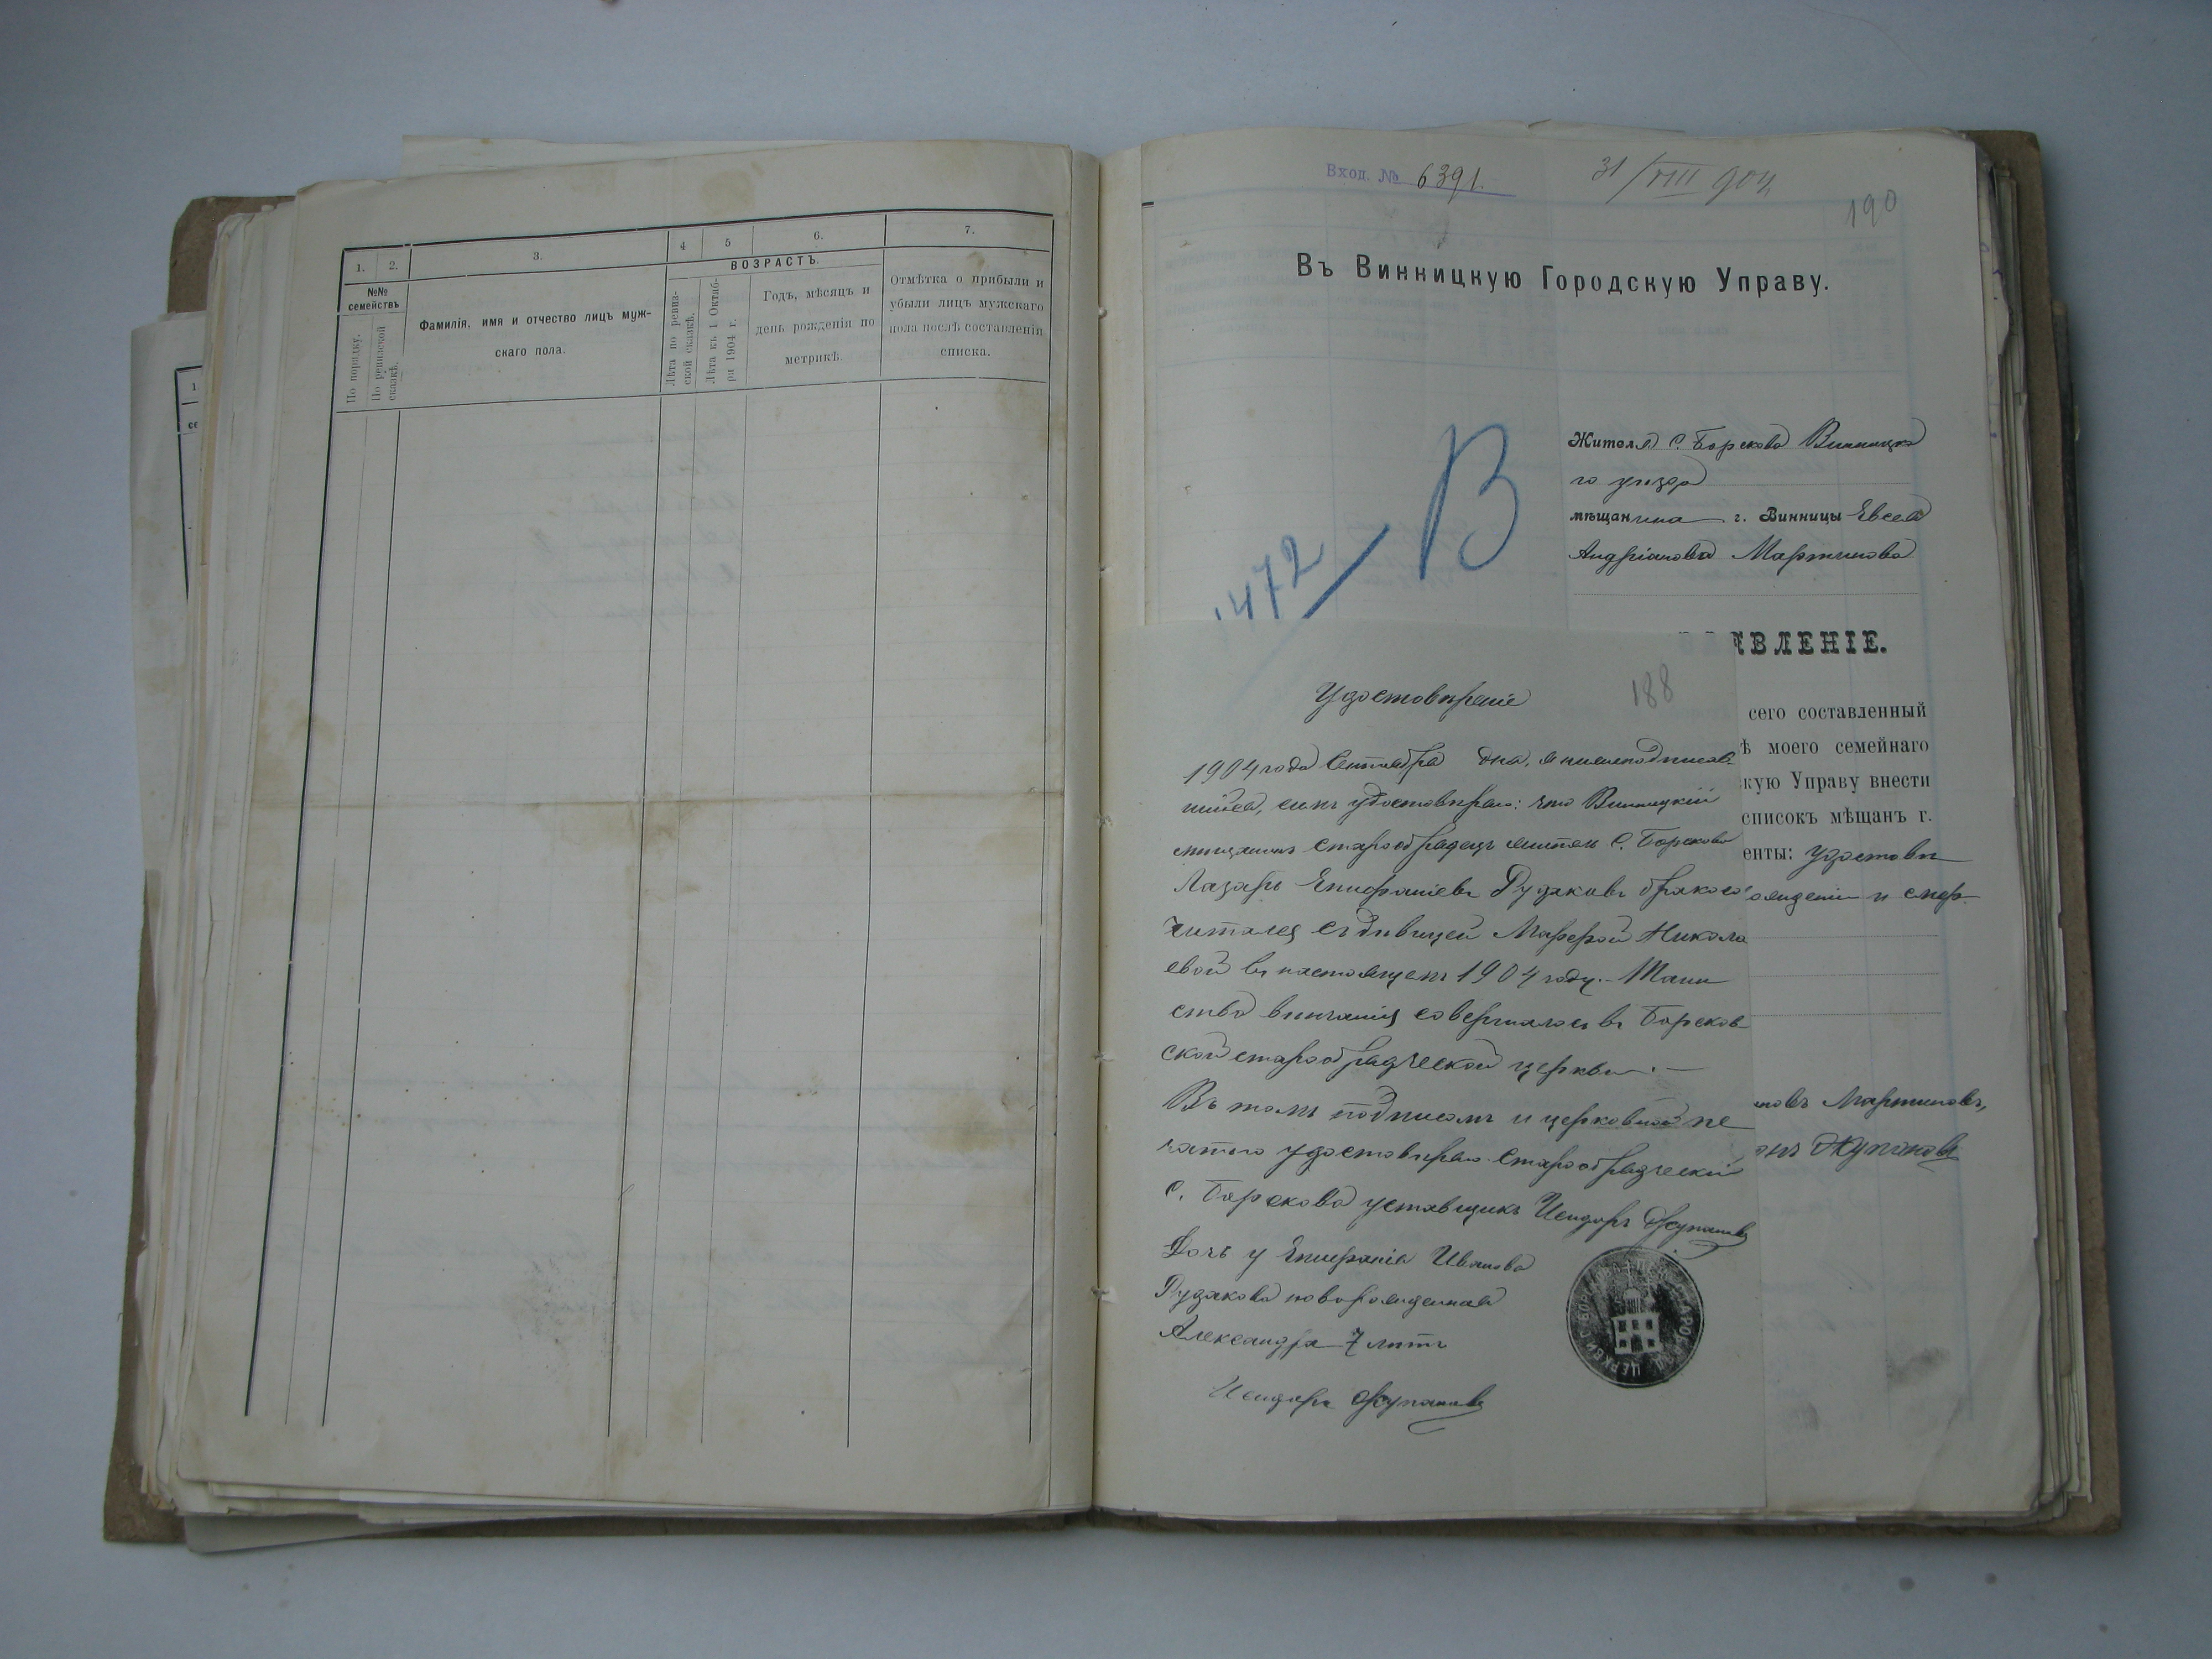 1. 2. 3. 4 5 6. 7.
№№ семействъ
По порядку.
По ревизской сказкѣ.
Фамилія, имя и отчество лицъ муж-
скаго пола.
ВОЗРАСТЪ.
Лѣта по ревиз-
ской сказкѣ.
Лѣта къ 1 Октяб-
ря 1904 г.
Годъ, мѣсяцъ и
день рожденія по
метрикѣ.
Отмѣтка о прибыли и
убыли лицъ мужскаго
пола послѣ составленія
списка.
Вход. № 6391.
31/VIII 904
190
Въ Винницкую Городскую Управу.
472
В
Жителя С. Борскова Винницка
го уезда
мѣщанина г. Винницы Евсея
Андріанова Мартинова
ЯВЛЕНІЕ.
сего составленный
ѣ моего семейнаго
скую Управу внести
списокъ мѣщанъ г.
енты: удостовѣ
ожденіи и смер
новъ Мартиновъ,
Жупановъ
188
Удостовѣреніе
1904 года Сентября дня, я нижеподписав-
шійся, симъ удостовѣряю: что Винницкій
мещанинъ старообрядецъ житель С. Борскова
Лазарь Епифаніевъ Рудаковъ бракосо
читался съ дѣвицей Марфой Никола
евой въ настоящемъ 1904 году. Таин
ство вѣнчанія совершалось въ Борсков-
ской старообрядческой церкви.—
Въ томъ подписомъ и церковной пе
чатью удостовѣряю старообрядческій
С. Борскова уставщикъ Исидоръ Жупановъ
Дочь у Епифанія Иванова
Рудакова новорожденная
Александра 7 лѣтъ
Исидоръ Жупановъ